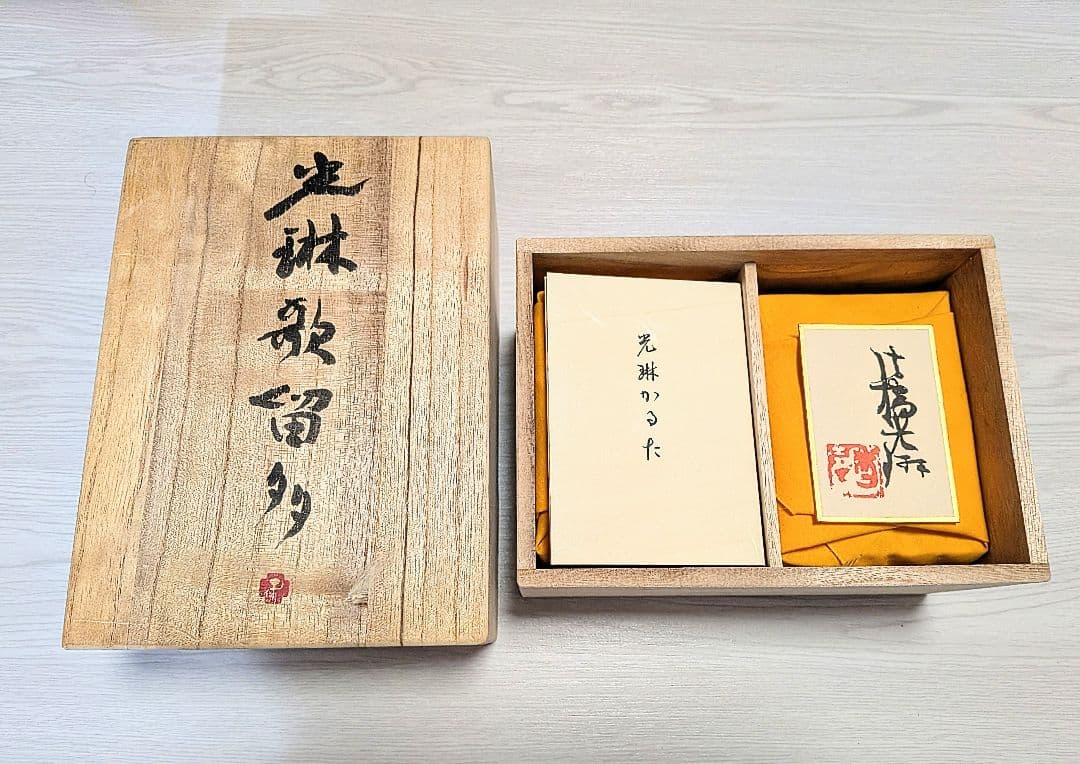 光琳歌留多
光琳かるた
法橋光琳